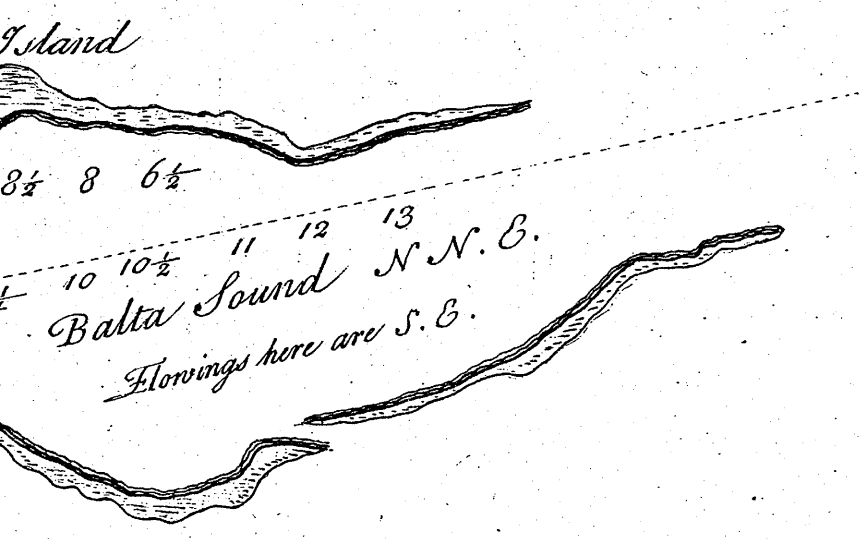 Island
8½ 8 6½
10 10½ 11 12 13
Balta Sound N N. E.
Flowings here are S. E.